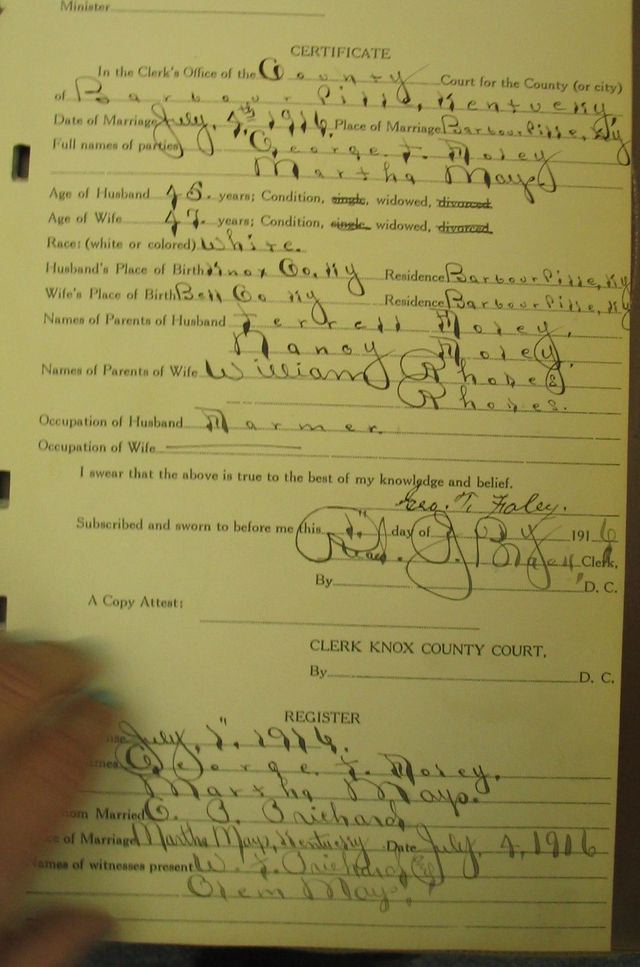 Minister
CERTIFICATE
In the Clerk's Office of the County Court for the County (or city)
of Barbourville, Kentucky,
Date of Marriage July, 4th 1916. Place of Marriage Barbourville, Ky
Full names of parties George. T. Foley
Martha Mays
Age of Husband 45. years; Condition, single, widowed, divorced
Age of Wife 47. years; Condition, single, widowed, divorced
Race: (white or colored) White.
Husband's Place of Birth Knox Co, Ky Residence Barbourville, Ky
Wife's Place of Birth Bell Co Ky Residence Barbourville, Ky
Names of Parents of Husband Ferrell Foley.
Nancy Foley.
Names of Parents of Wife William Rhodes
Rhodes.
Occupation of Husband Farmer.
Occupation of Wife
I swear that the above is true to the best of my knowledge and belief.
Geo. T. Foley.
Subscribed and sworn to before me this 1" day of July 1916
Read. Clerk,
By D. C.
A Copy Attest:
CLERK KNOX COUNTY COURT.
By D. C.
REGISTER
July, 1", 1916.
George. T. Foley.
Martha Mays.
Married
of Marriage Martha Mays, Kentucky Date July, 4, 1916
ames of witnesses present
Mays,